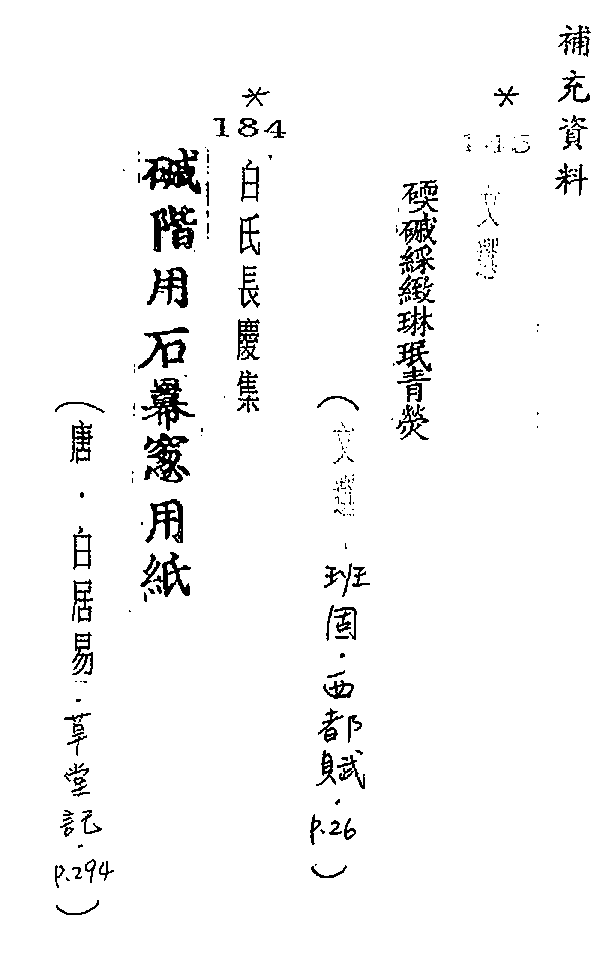 補充資料
*
145
文選
碝磩綵緻琳珉青熒
(文選.班固.西都賦.p.26)
*
184
白氏長慶集
磩階用石冪窻用紙
(唐.白居易.草堂記.p.294)